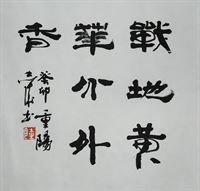 戰地黃
華分外
香
癸卯重陽